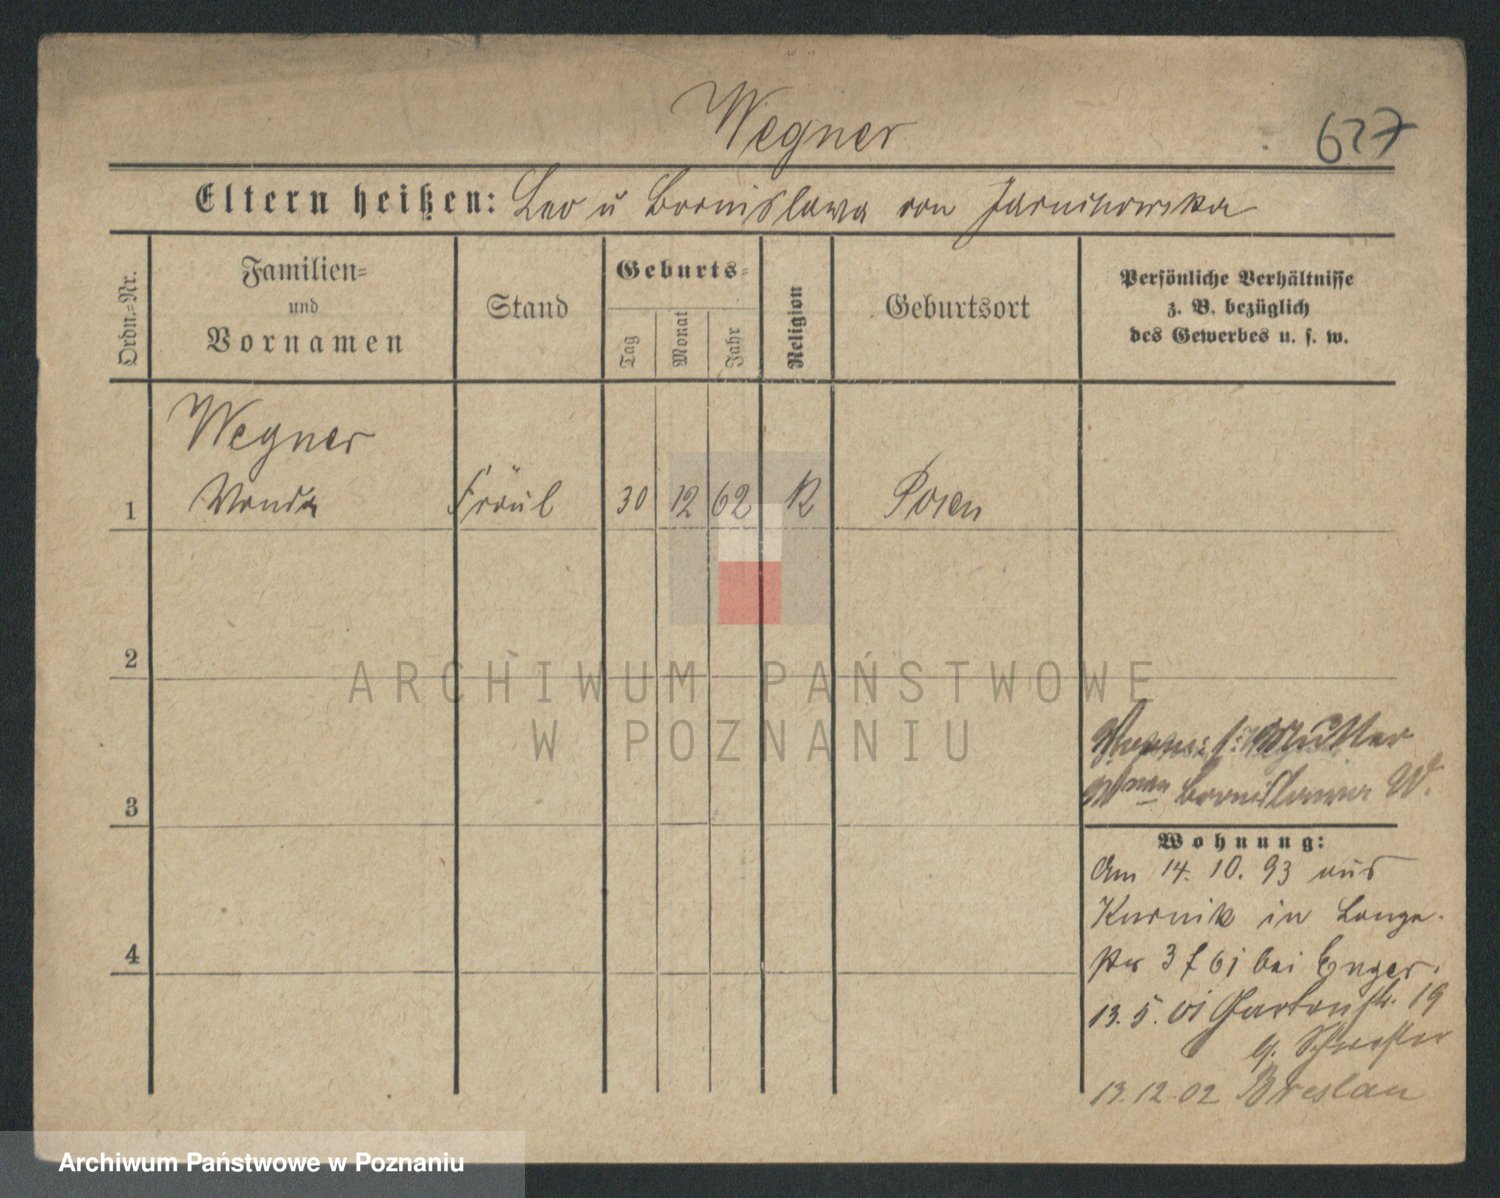 Wegner
627
Eltern heißen: Leo u Bronislawa von Jaruchowska
Ordn.=Nr.
Familien=
und
Vornamen
Stand
Geburts=
Tag
Monat
Jahr
Religion
Geburtsort
Persönliche Verhältnisse
z. B. bezüglich
des Gewerbes u. s. w.
Wegner
1 Wanda Fräul 30 12 62 K Posen
2
3
4
Mutter
Bronislawa W.
Wohnung:
Am 14. 10. 93 aus
Kurnik in Lange-
str 3 bei
13. 5. 01 Gartenstr. 19
b. Schwester
13.12.02 Breslau
ARCHIWUM PAŃSTWOWE
W POZNANIU
Archiwum Państwowe w Poznaniu